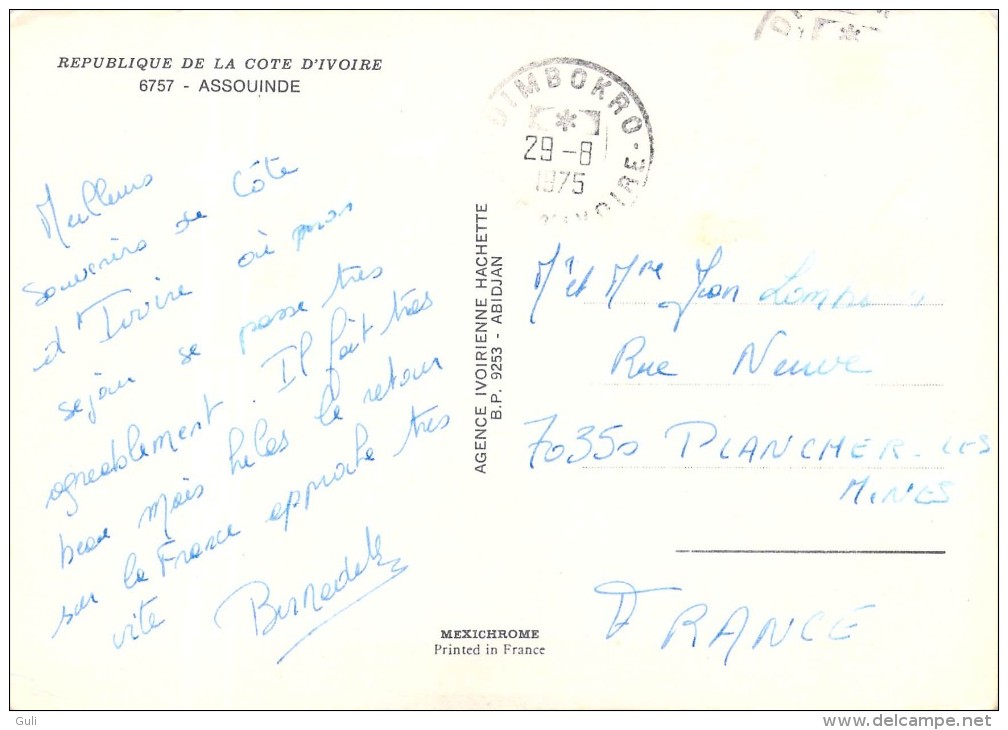 REPUBLIQUE DE LA COTE D'IVOIRE
6757 - ASSOUINDE
Meilleurs
souvenirs de Côte
d'Ivoire où mon
séjour se passe très
agreablement. Il fait très
beau mais hélas le retour
sur la France approche très
vite
Bernadette
AGENCE IVOIRIENNE HACHETTE
B.P. 9253 - ABIDJAN
DIMBOKRO
29-8
1975
D'IVOIRE
Mr et Mme Jean
Rue Neuve
70350 PLANCHER-LES
MINES
FRANCE
MEXICHROME
Printed in France
Guli
delcampe.net